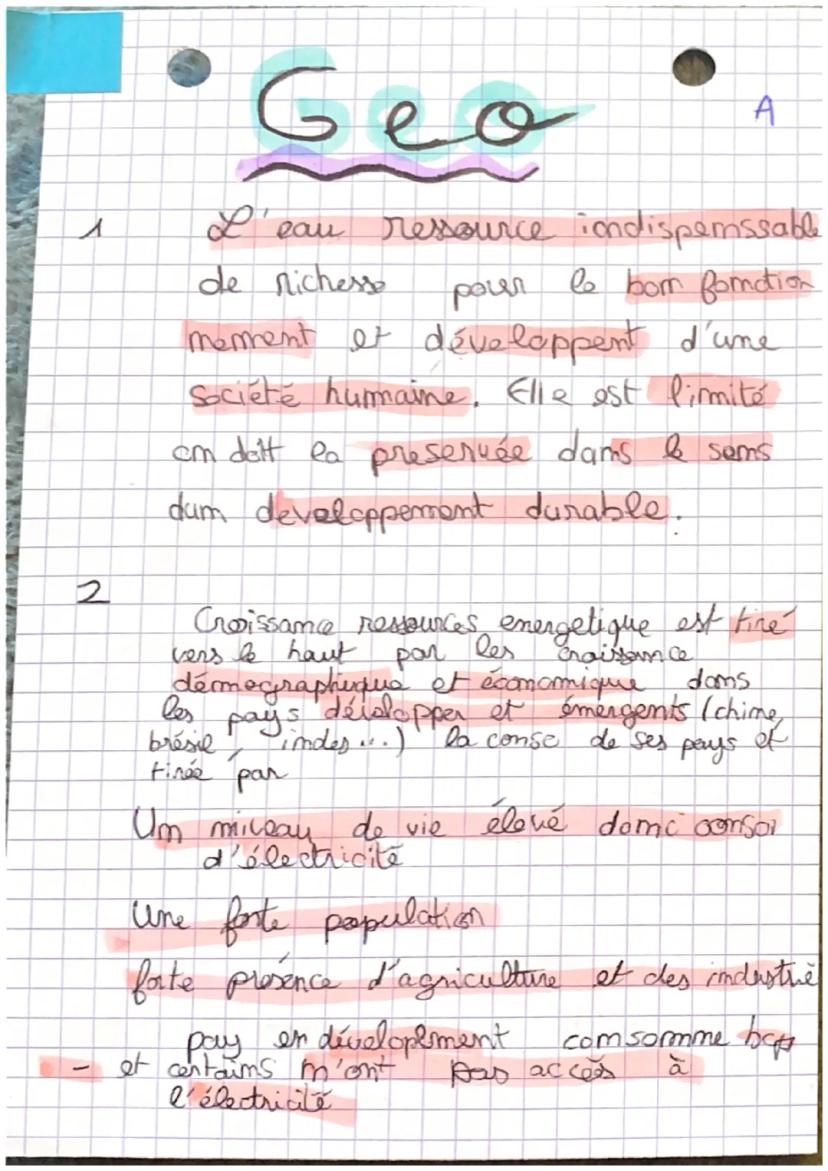 Geo
A
1 L'eau ressource indispenssable
de richesse pour le bon fonction
nement et développent d'une
société humaine. Elle est limité
on doit la preservée dans le sens
dun developpement durable.
2
Croissance ressources energetique est tiré
vers le haut par les croissance
démographique et économique dans
les pays développer et émergents (chine,
brésil, indes...) la conso de ses pays et
tirée par
Un niveau de vie élevé donc conso
d'électricité
Une forte population
forte présence d'agriculture et des industrie
pay en développment consomme bcp
- et certains n'ont pas accès à
l'électricité